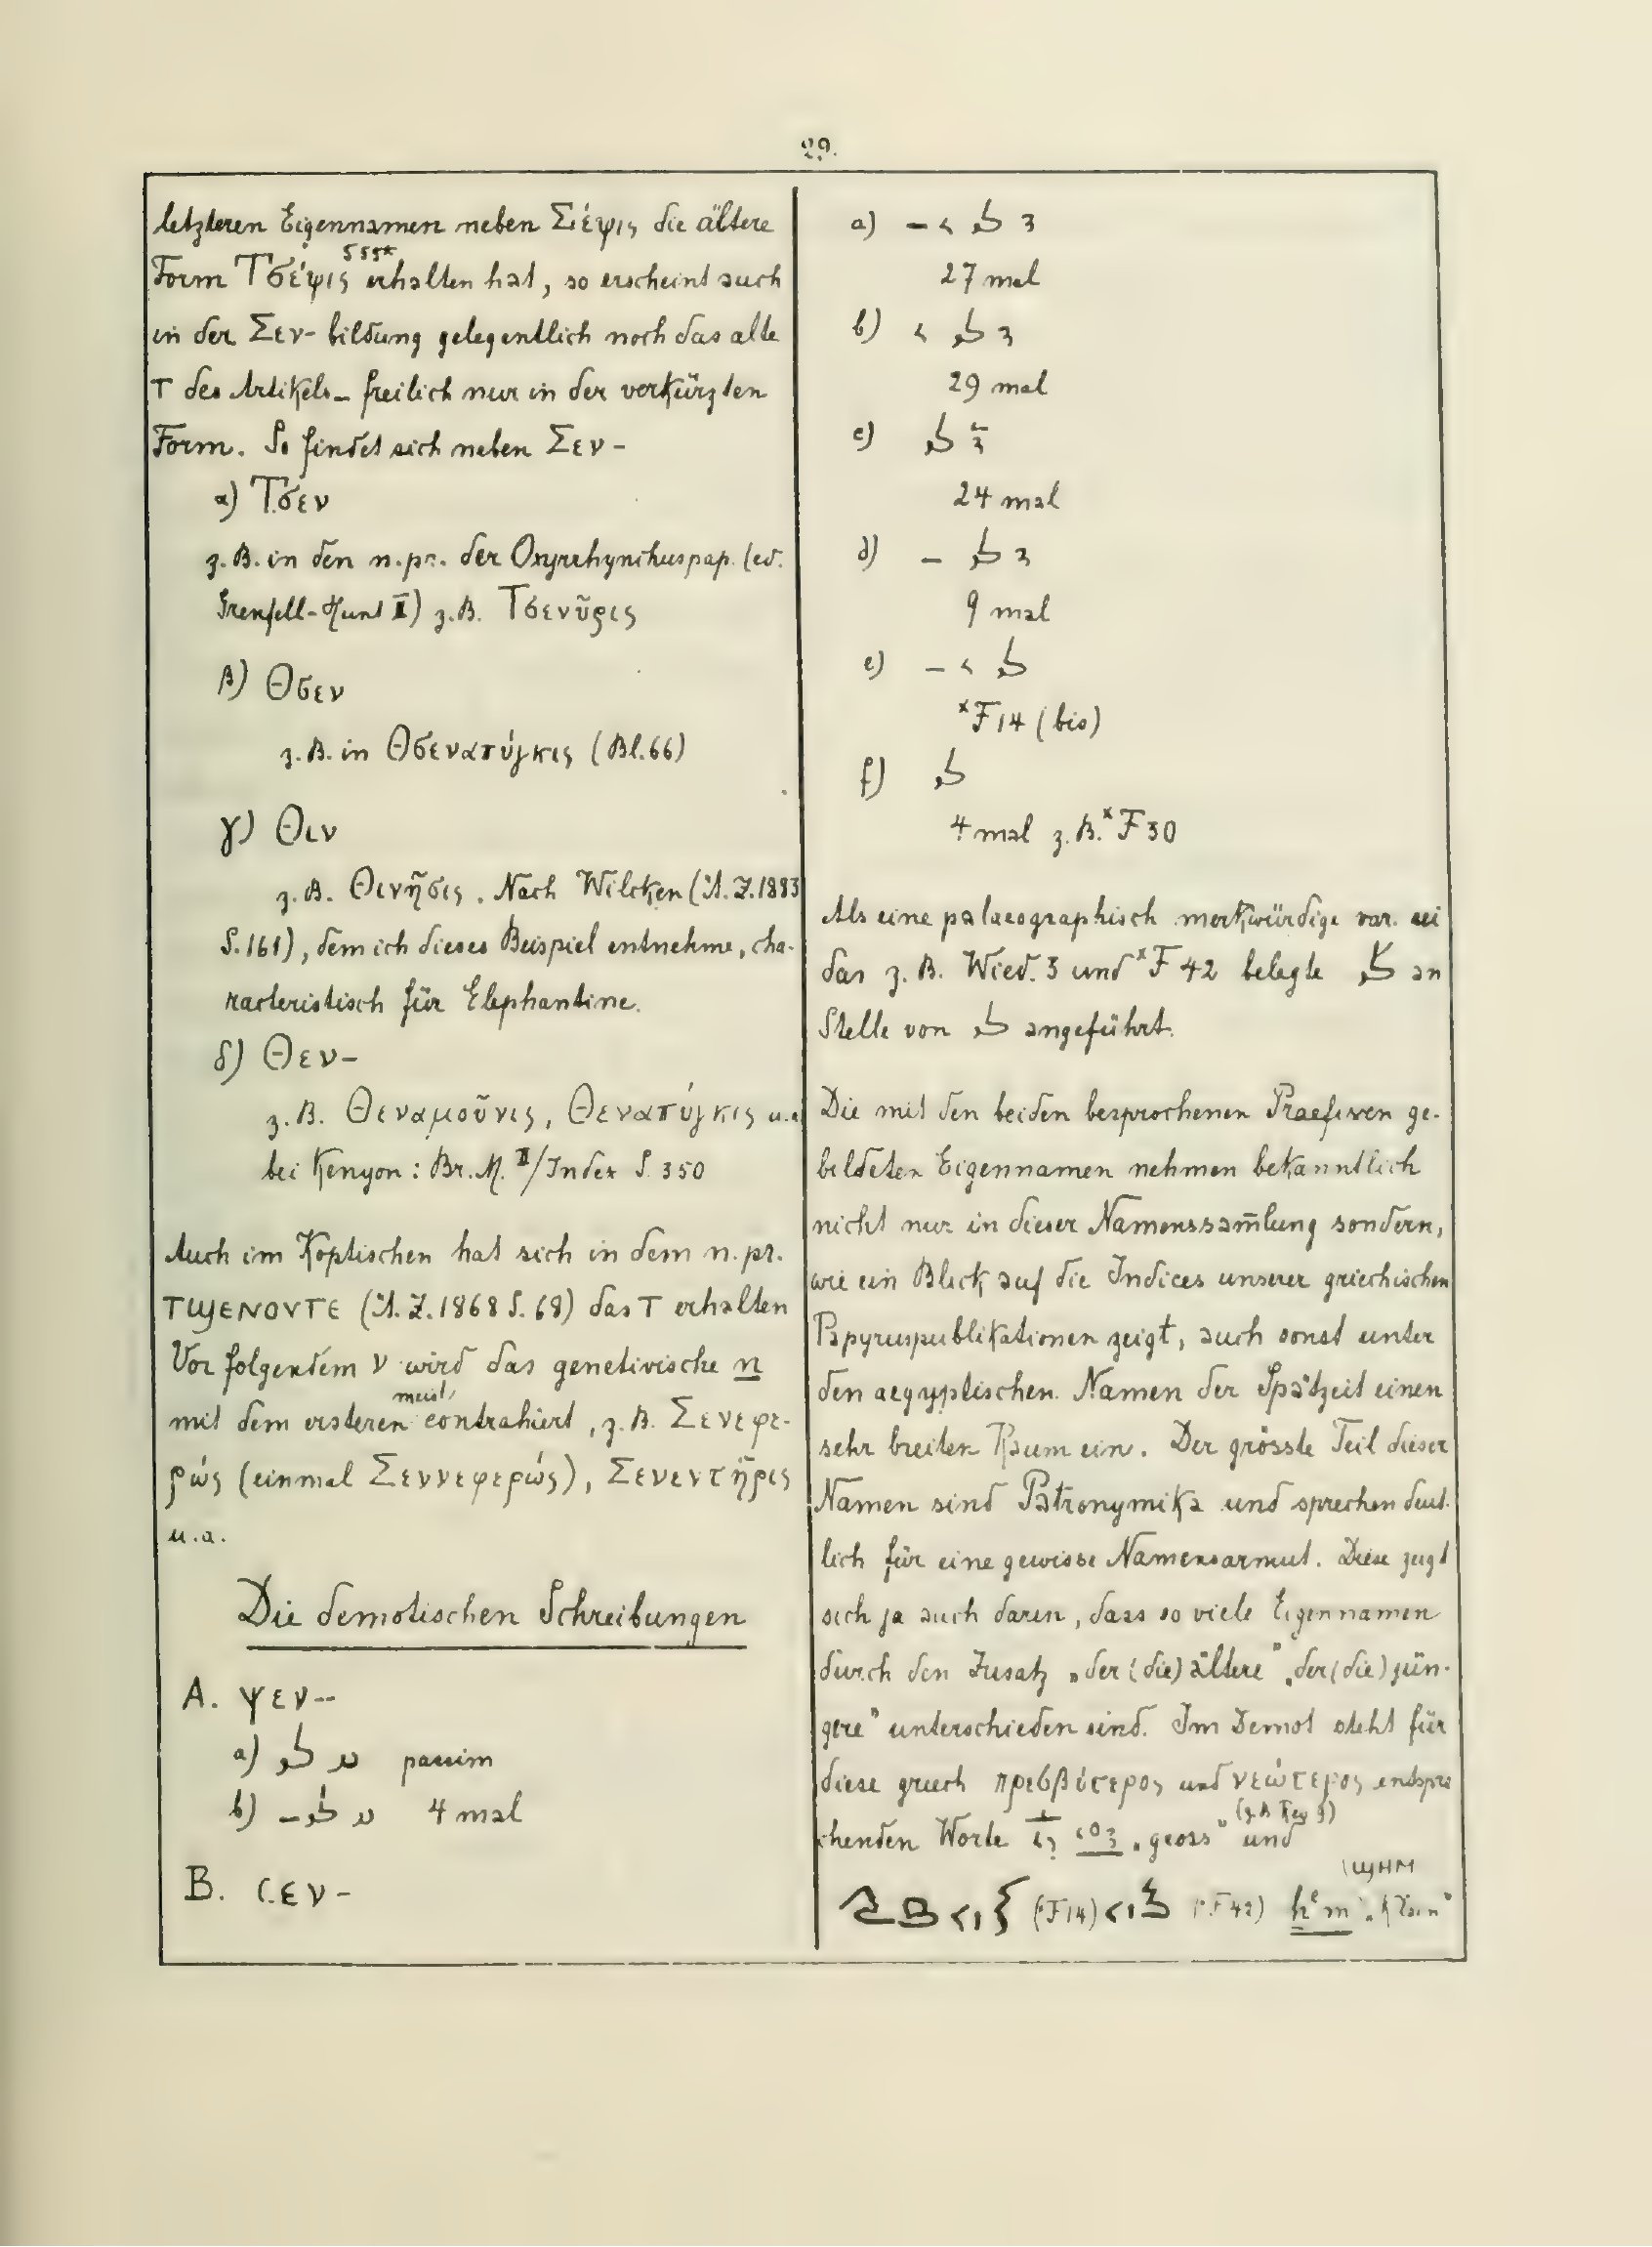 29.
letzteren Eigennamen neben Σιέψις die ältere
Form Τσέψις erhalten hat, so erscheint auch
in der Σεν- bildung gelegentlich noch das alte
τ des Artikels – freilich nur in der verkürzten
Form. So findet sich neben Σεν-
α) Τσεν
z.B. in den n.pr. der Oxyrrhynchuspap. (ed.
Grenfell-Hunt II) z.B. Τσενῦρις
β) Θσεν
z.B. in Θσενατύγκις (Bl. 66)
γ) Θιν
z.B. Θινῆσις. Nach Wilcken (Ä.Z. 1883
S. 161), dem ich dieses Beispiel entnehme, cha-
racteristisch für Elephantine.
δ) Θεν-
z.B. Θεναμοῦνις, Θενατύγκις
bei Kenyon: Br.M. II/Index S. 350
Auch im Koptischen hat sich in dem n.pr.
ⲧϣⲉⲛⲟⲩⲧⲉ (Ä.Z. 1868 S. 68) das T erhalten
Vor folgendem ν wird das genetivische n
mit dem ersteren meist contrahiert, z.B. Σενεφε-
ρώς (einmal Σεννεφερώς), Σενεντῆρις
u.a.
Die demotischen Schreibungen
A. ψεν--
a) passim
b) 4 mal
B. Σεν-
a)
27 mal
b)
29 mal
c)
24 mal
d)
9 mal
e)
*F 14 (bis)
f)
4 mal z.B. *F 30
Als eine palaeographisch merkwürdige var. sei
das z.B. Wied. 3 und *F 42 belegte an
Stelle von angeführt.
Die mit den beiden besprochenen Praefixen ge-
bildeten Eigennamen nehmen bekanntlich
nicht nur in dieser Namenssam̄lung sondern,
wie ein Blick auf die Indices unserer griechischen
Papyruspublikationen zeigt, auch sonst unter
den aegyptischen Namen der Spätzeit einen
sehr breiten Raum ein. Der grösste Teil dieser
Namen sind Patronymika und sprechen deut-
lich für eine gewisse Namensarmut. Diese zeigt
sich ja auch darin, dass so viele Eigennamen
durch den Zusatz „der (die) ältere" „der (die) jün-
gere" unterschieden sind. Im Demot steht für
diese griech πρεσβύτερος und νεώτερος entspre
chenden Worte „gross" und
(F14) (*F 42) ϣⲏⲙ „klein"